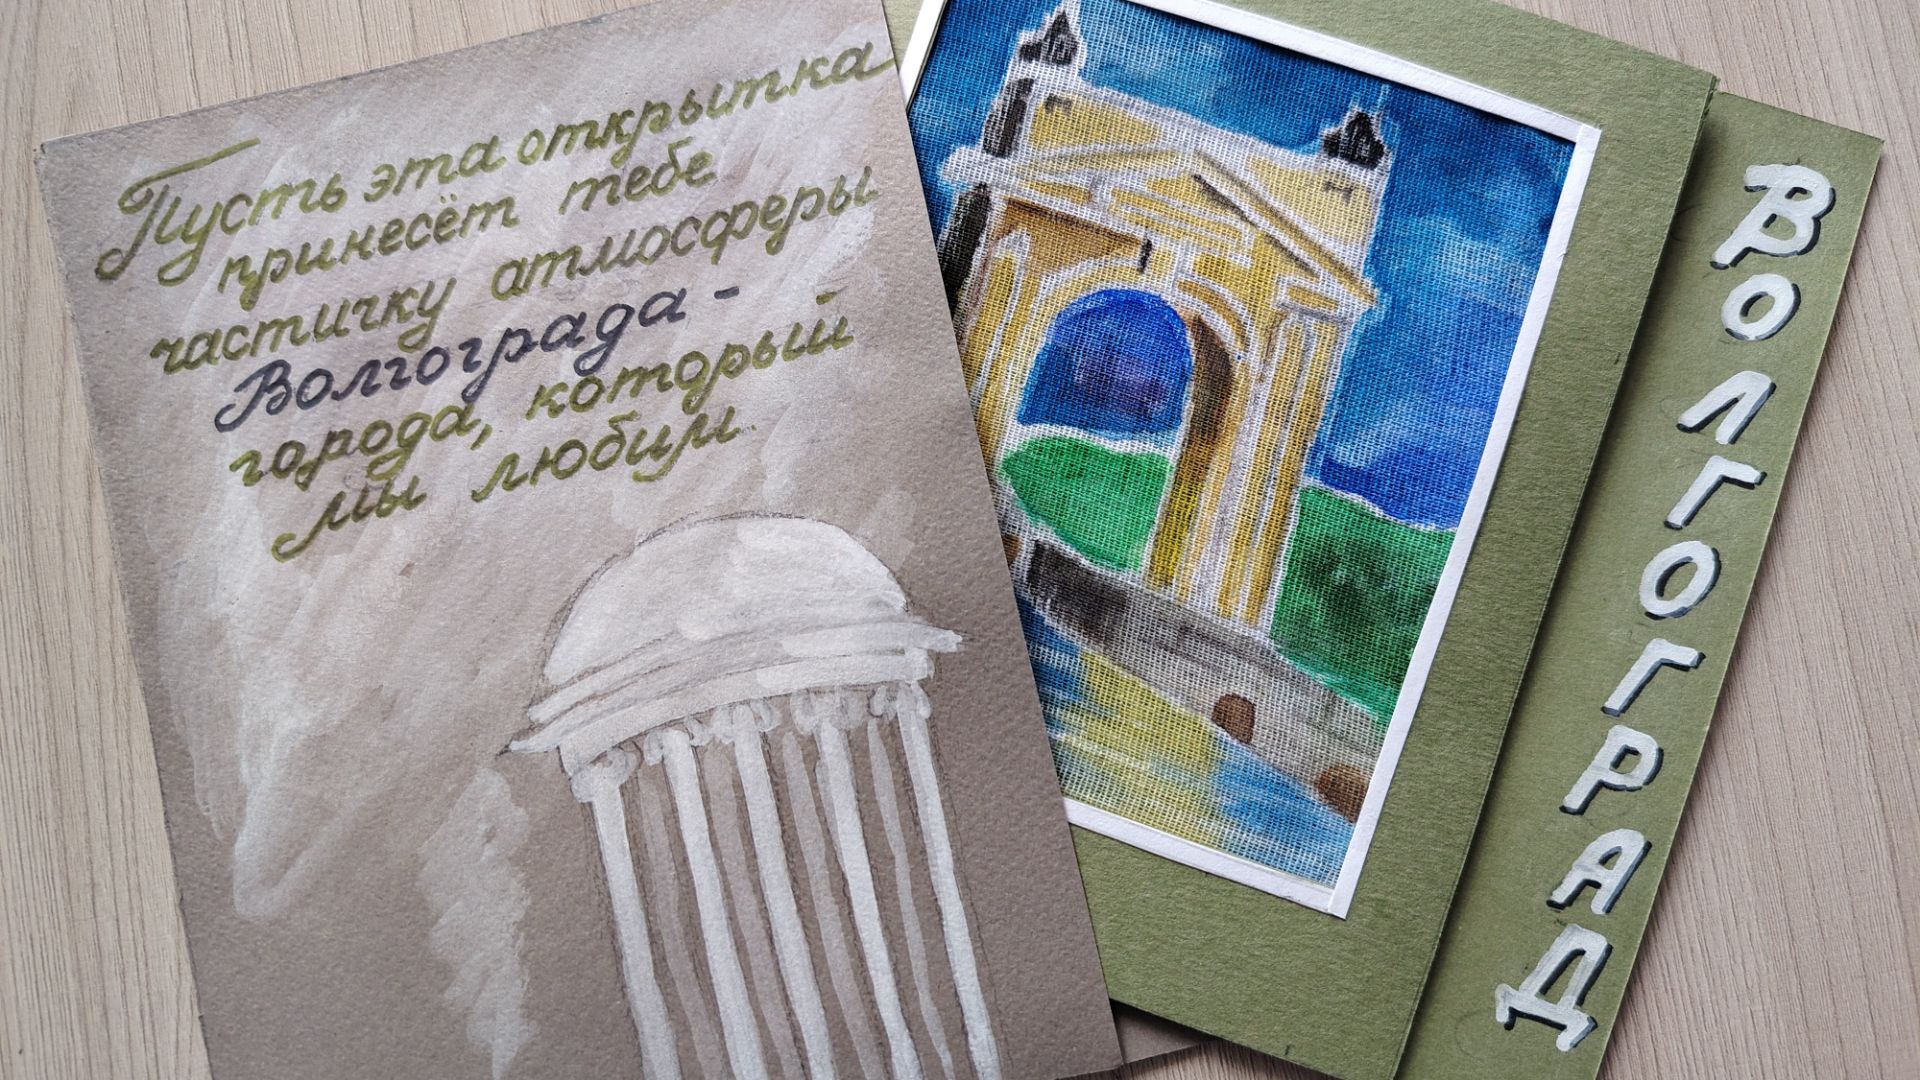 Пусть эта открытка
принесёт тебе
частичку атмосферы
Волгограда -
города, который
мы любим.
ВОЛГОГРАД